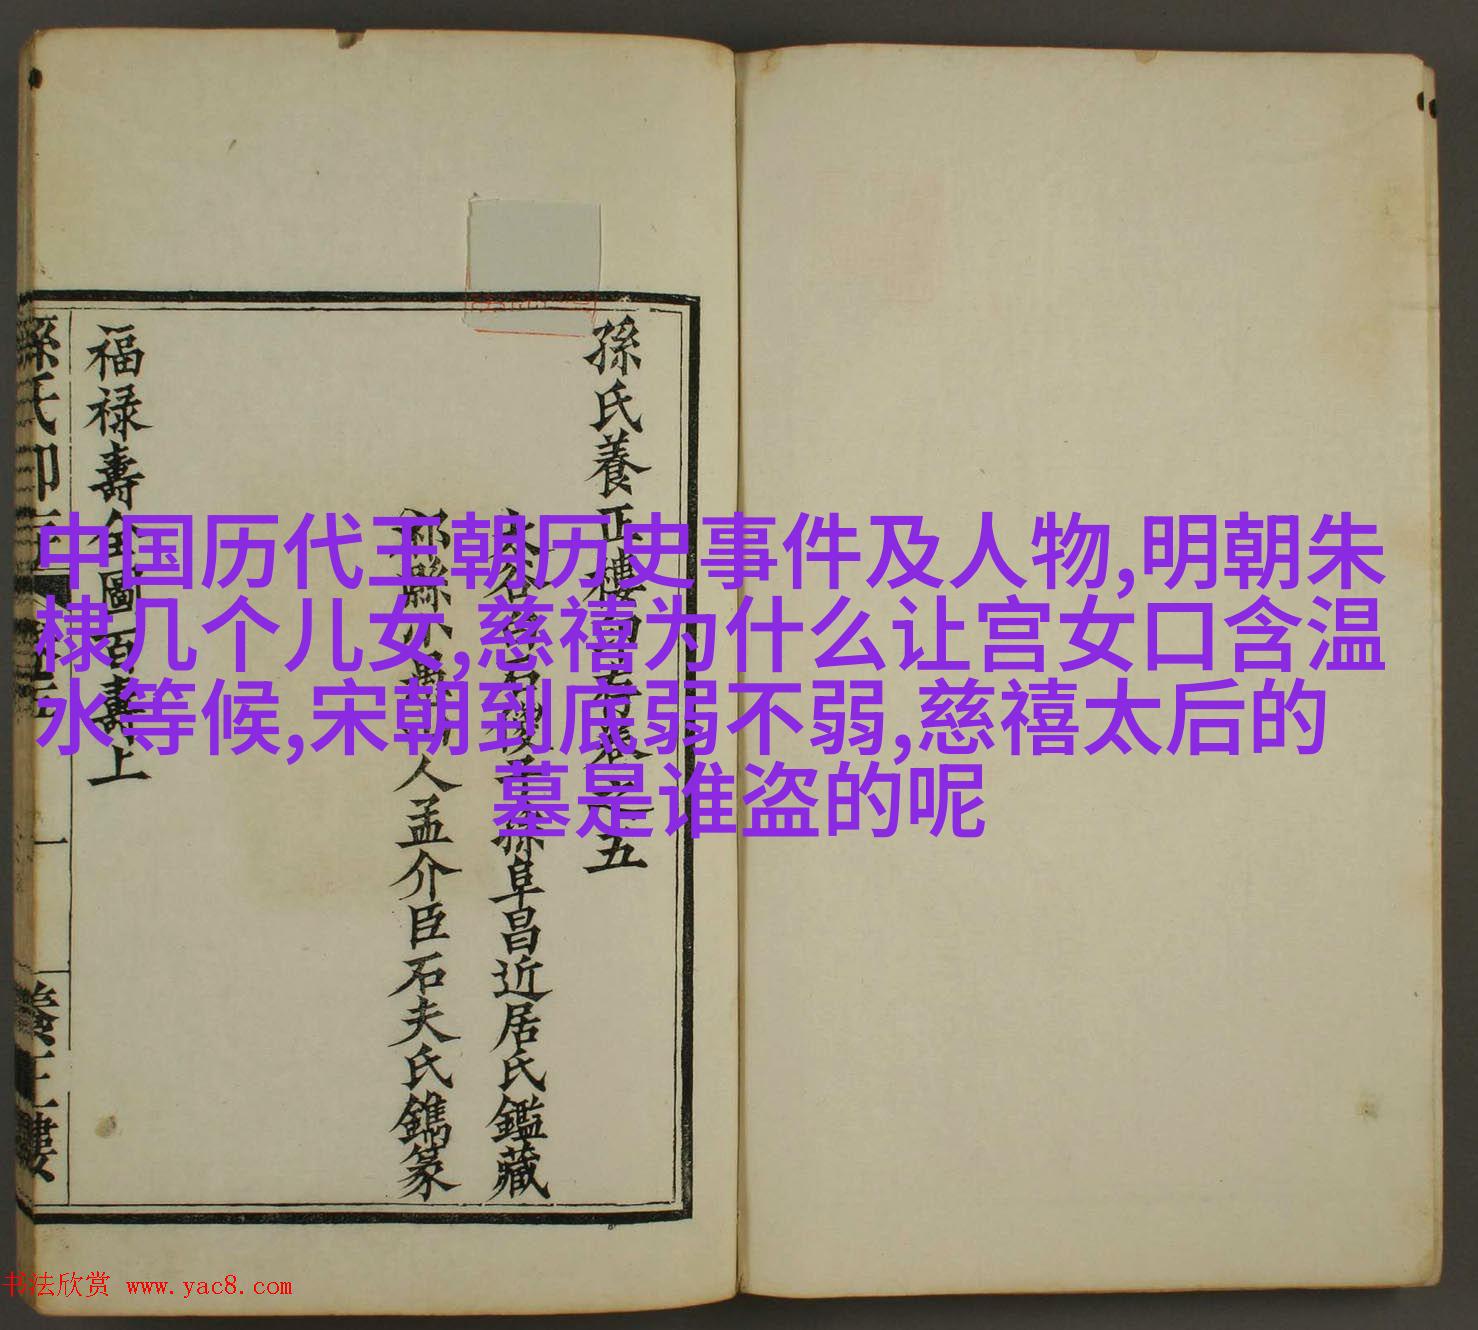 中国历代王朝历史事件及人物,明朝朱
棣几个儿女,慈禧为什么让宫女口含温
水等候,宋朝到底弱不弱,慈禧太后的
墓是谁盗的呢
孫氏養正樓印存卷之五
人孟介臣石夫氏鐫篆
孫阜昌近居氏鑑藏
福禄壽全圖百壽上
書法欣赏 www.yac8.com